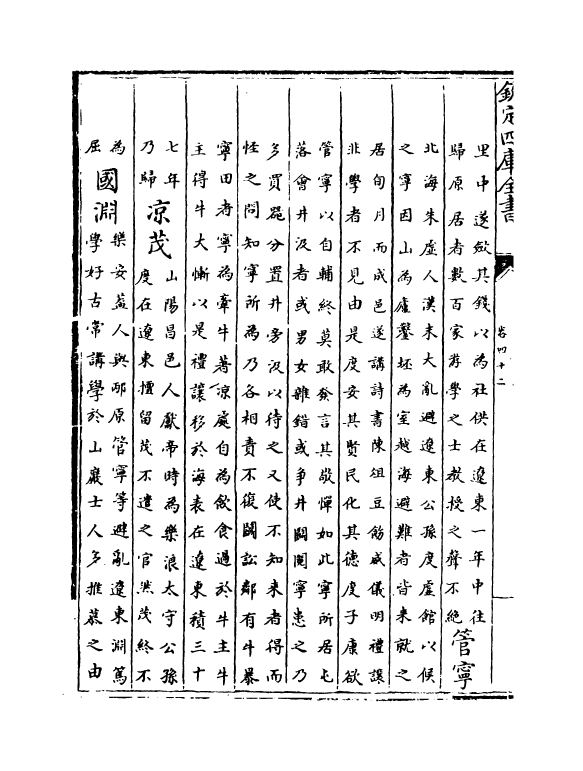 欽定四庫全書
卷四十二
里中遂斂其錢以為社供在遼東一年中往
歸原居者數百家游學之士教授之聲不絶管寧
北海朱虛人漢末大亂避遼東公孫度虛館以候
之寧因山為廬鑿坯為室越海避難者皆來就之
居旬月而成邑遂講詩書陳俎豆飭威儀明禮讓
非學者不見由是度安其賢民化其德度子康欲
管寧以自輔終莫敢發言其敬憚如此寧所居屯
落會井汲者或男女雜錯或争井鬭鬩寧患之乃
多買器分置井旁汲以待之又使不知來者得而
怪之問知寧所為乃各相責不復鬭訟鄰有牛暴
寧田者寧為牽牛著凉處自為飲食過於牛主牛
主得牛大慚以是禮讓移於海表在遼東積三十
七年乃歸凉茂山陽昌邑人獻帝時為樂浪太守公孫
度在遼東擅留茂不遣之官然茂終不
為屈國淵樂安葢人與邴原管寧等避亂遼東淵篤
學好古常講學於山巖士人多推慕之由